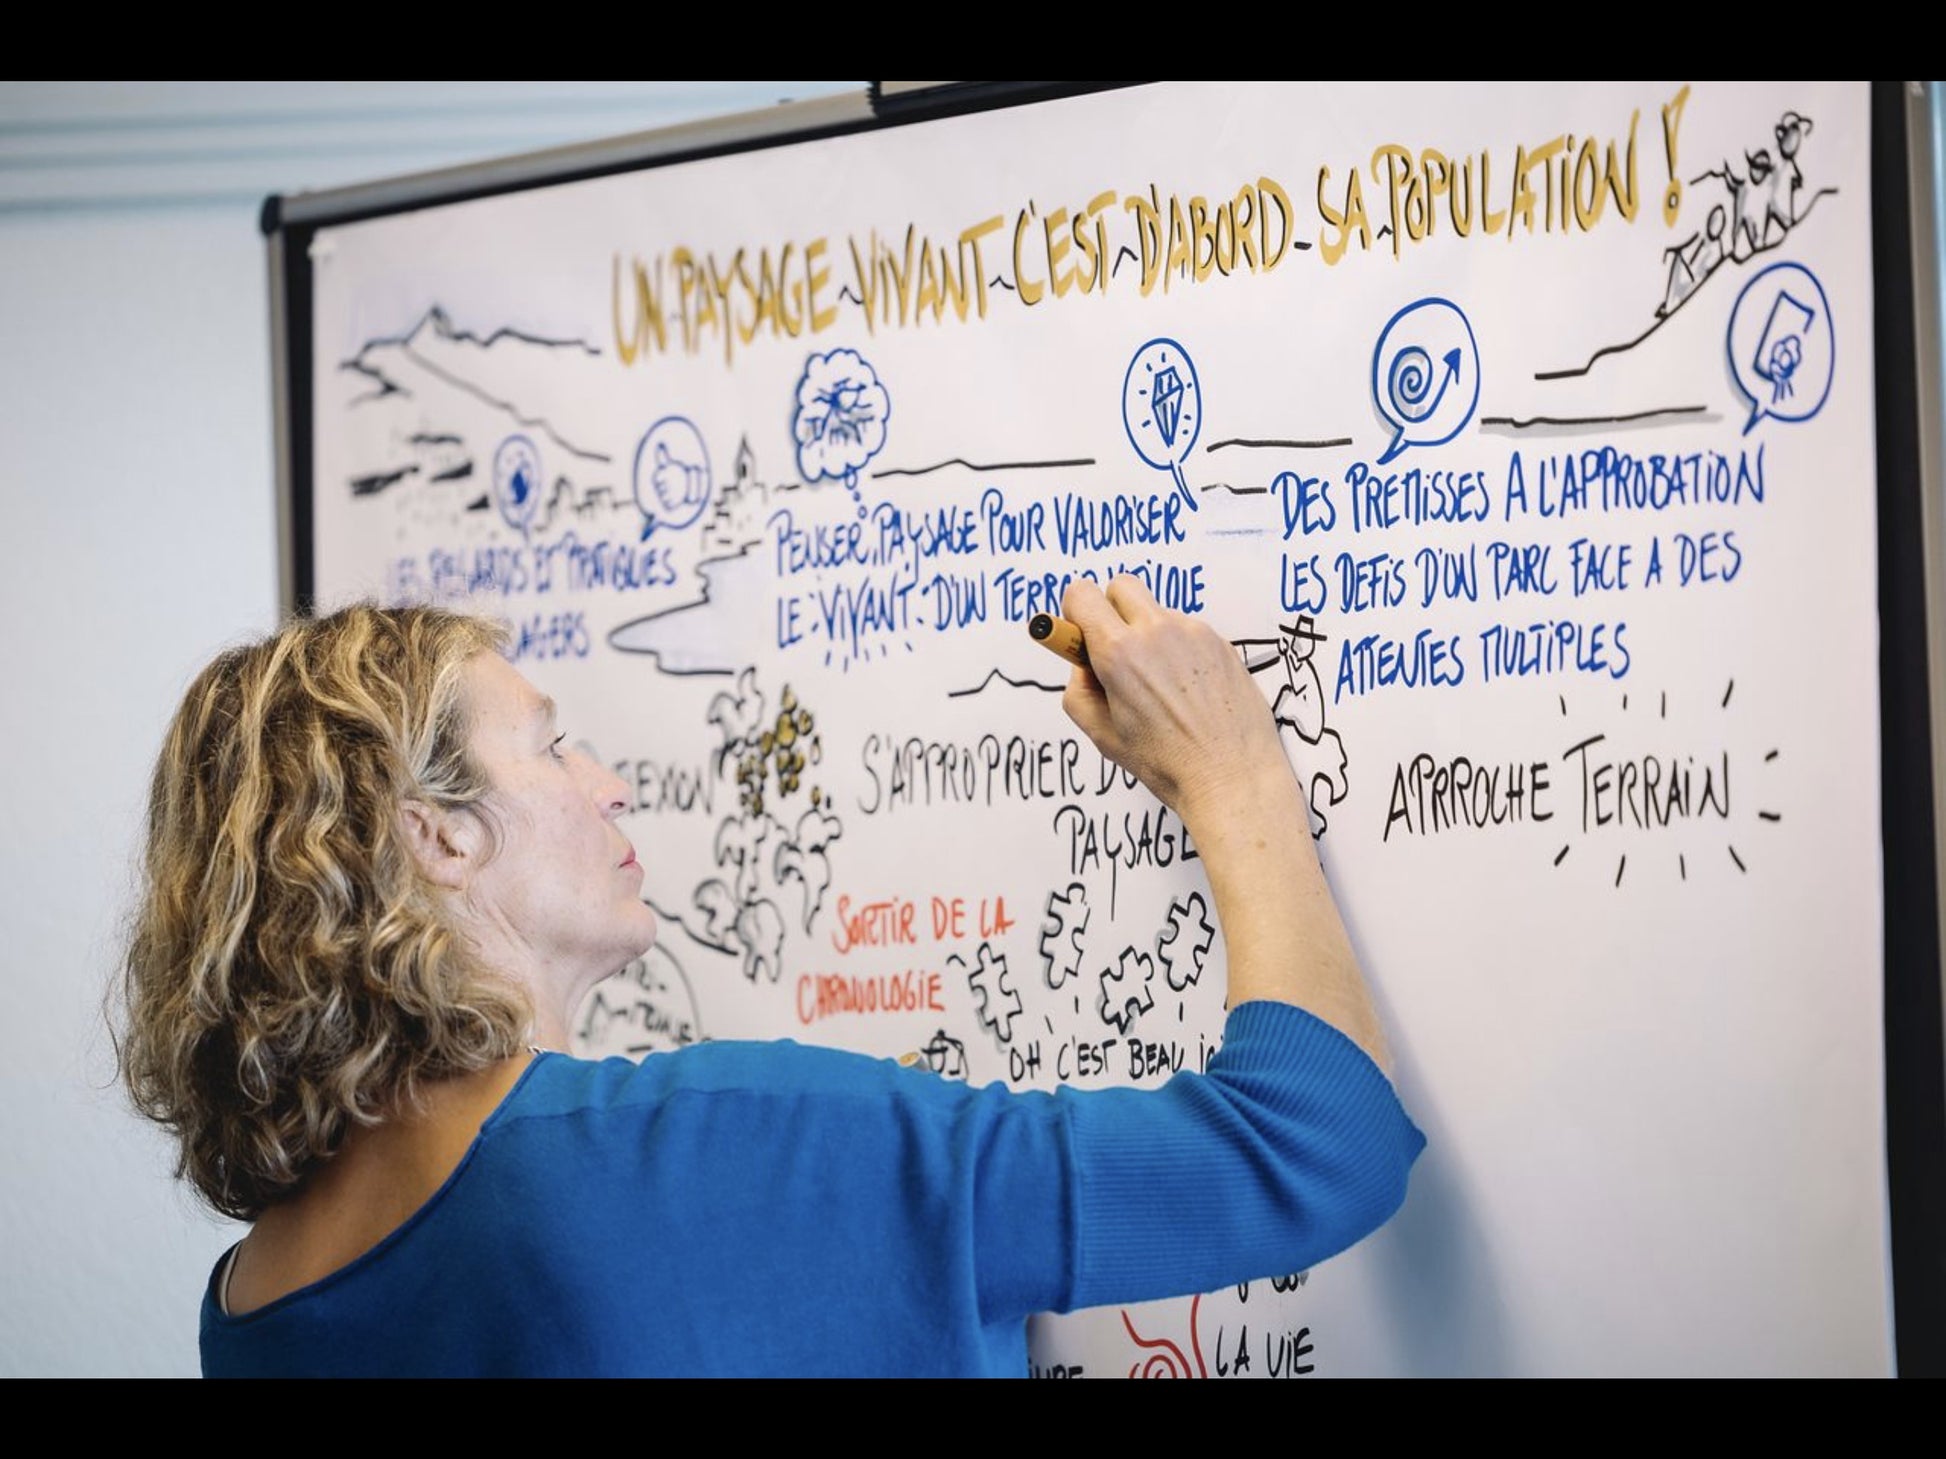 UN PAYSAGE VIVANT C'EST D'ABORD SA POPULATION !
LES REGARDS ET PRATIQUES
PENSER PAYSAGE POUR VALORISER
LE VIVANT D'UN TERROIR
DES PREMISSES A L'APPROBATION
LES DEFIS D'UN PARC FACE A DES
ATTENTES MULTIPLES
S'APPROPRIER DU
PAYSAGE
APRROCHE TERRAIN
SORTIR DE LA
CHRONOLOGIE
OH C'EST BEAU
LA VIE